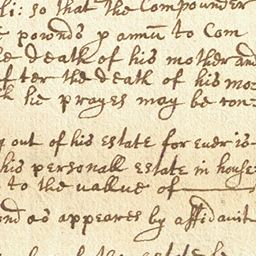 li: so that the Compounder
powndς p annū to Com
death of his mother and
fter the death of his mo
he prayes may be con
out of his estate for euer is
his personall estate in house
to the vallue of
and as appeares by affidauit